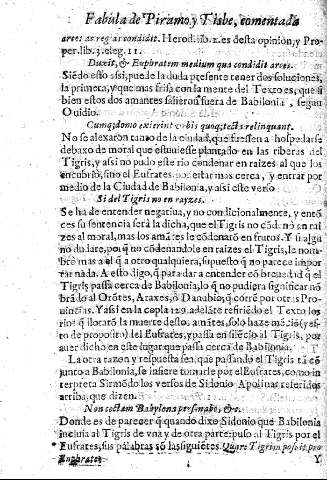 Fabula de Piramo, y Tisbe, comentada
arces ac regias condidit. Herod. lib. 2. es desta opinion, y Pro
per. lib. 3. eleg. 11.
Duxit, & Euphratem medium qua condidit arces.
Siẽdo esto assi, puede la duda presente tener dos soluciones,
la primera, y que mas frisa con la mente del Texto es, que si
bien estos dos amantes salieron fuera de Babilonia, segun
Ouidio.
Cumq; domo exierint vrbis quoq; tecta relinquant.
No se alexaron tanto de la ciudad, que fuessen a hospedarse
debaxo de moral que estuuiesse plantado en las riberas del
Tigris, y assi no pudo este rio condenar en raizes al que los
encubrio, sino el Eufrates, por estar mas cerca, y entrar por
medio de la Ciudad de Babilonia, y assi este verso
Si del Tigris no en rayzes.
Se ha de entender negatiua, y no condicionalmente, y entõ
ces su sentencia serà la dicha, que el Tigris no cõdenò en rai
zes al moral, mas los amãtes le cõdenarõ en frutos. Y si algu
no dudare, por q̃ no cõdenandole en raizes el Tigris, le nom
brò mas a el q̃ a otro qualquiera, supuesto q̃ no parece impor
tar nada. A esto digo, q̃ para dar a entender cõ breuedad q̃ el
Tigris passa cerca de Babilonia, lo q̃ no pudiera significar nõ
brãdo al Orõtes, Araxes, ò Danubio, q̃ corrẽ por otras Pro-
uinzias. Y assi en la copla 129. adelãte refiriẽdo el Texto los
rios q̃ lloraro la muerte destos amãtes, solo haze meciõ (y es
to de proposito) del Eufrates, y passa en silẽcio al Tigris, por
auer dicho en este lugar que passa cerca de Babilonia.
La otra razon y respuesta sea, que passando el Tigris tã cõ
junto a Babilonia, se infiere tomarle por el Eufrates, como in
terpreta Sirmõdo los versos de Sidonio Apolinas referidos
arriba, que dizen.
Non coctam Babylona personabo, &c.
Donde es de parecer q̃ quando dixo Sidonio que Babilonia
incluìa al Tigris de vna y de otra parte, puso al Tigris por el
Eufrates, sus palabras sõ las siguiẽtes. Quare Tigrim posuit pro
Euphrate. Y